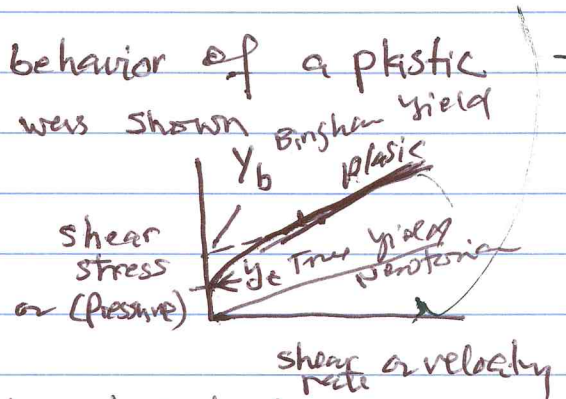 behavior of a plastic
was shown Bingham yield
Yb plasic
shear
stress
or (Pressure)
Yt True Yield
Newtonian
shear or velocity
rate